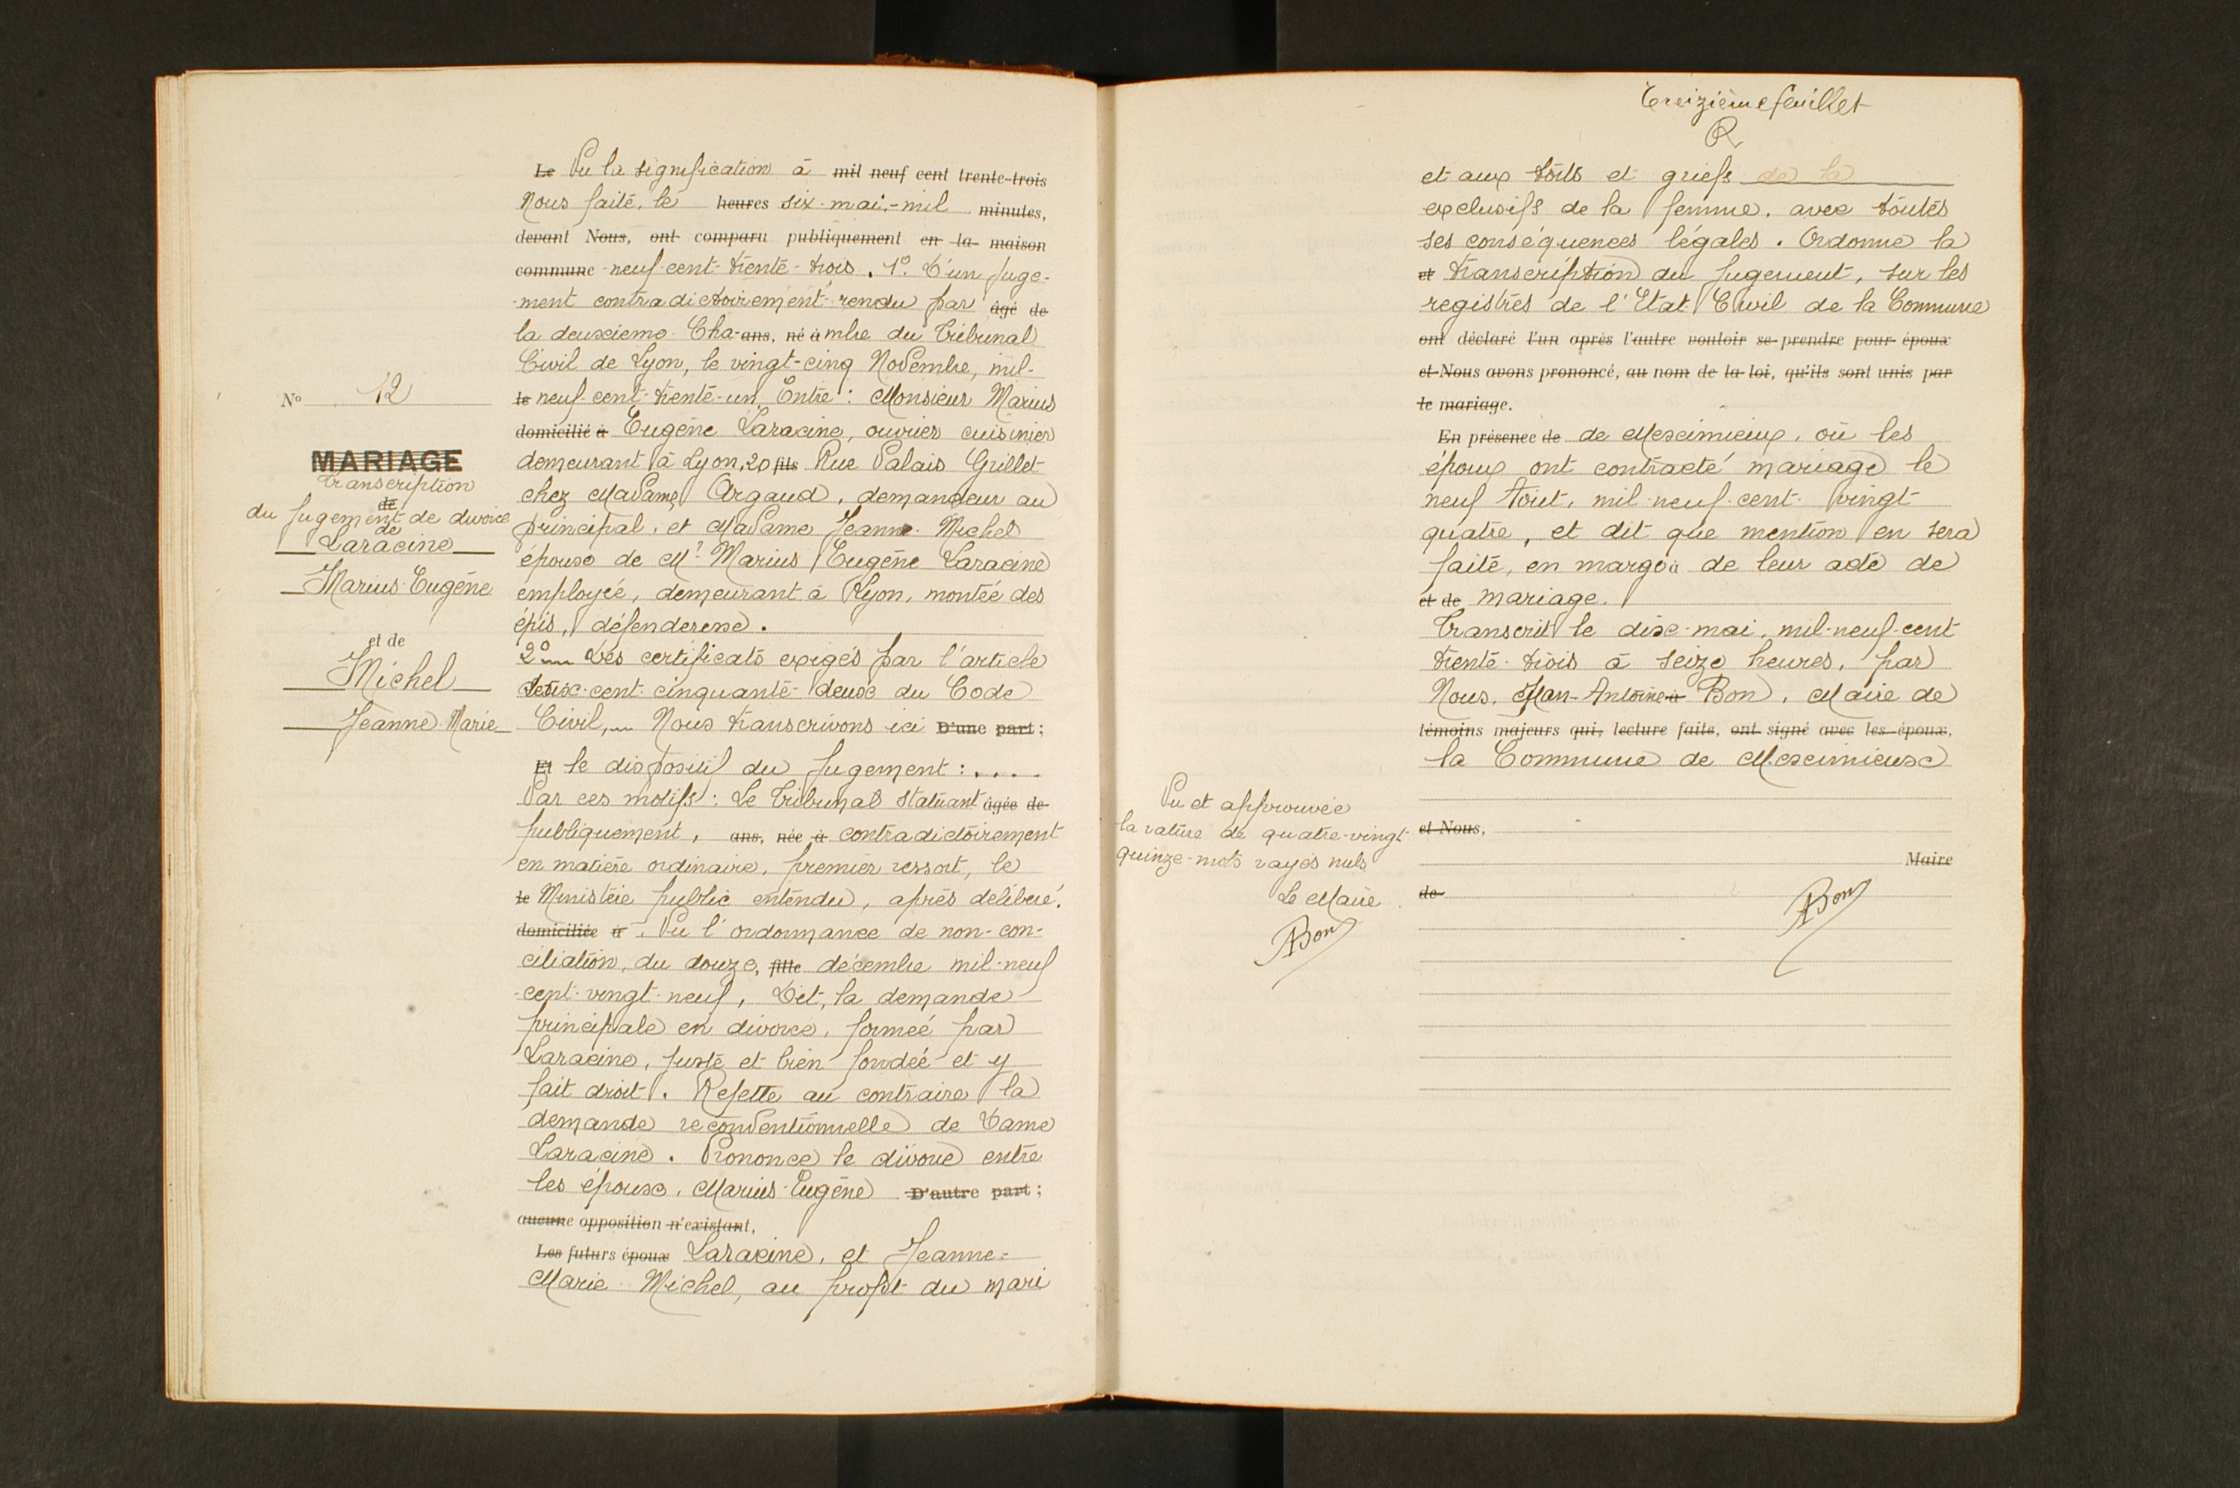 N° 12
MARIAGE
Transcription
de
du jugement de divorce
de
Laracine
Marius-Eugène
et de
Michel
Jeanne Marie
Le Vu la signification à mil neuf cent trente-trois
Nous faite, le heures six mai,-mil minutes,
devant Nous, ont comparu publiquement en la maison
commune neuf-cent-trente-trois. 1° D'un juge-
-ment contradictoirement rendu par âgé de
la deuxième Cha- ans, né à mbre du Tribunal
Civil de Lyon, le vingt-cinq Novembre, mil-
le neuf-cent-trente-un, Entre : Monsieur Marius
domicilié à Eugène Laracine, ouvrier cuisinier
demeurant à Lyon, 20 fils Rue Palais Grillet
chez Madame Argaud, demandeur au
principal, et Madame Jeanne Michel
épouse de Mr Marius Eugène Laracine
employée, demeurant à Lyon, montée des
épis, défenderesse.
2° Des certificats exigés par l'article
deux-cent-cinquante-deux du Code
Civil, Nous transcrivons ici D'une part ;
Et le dispositif du jugement : ....
Par ces motifs : Le Tribunal statuant âgée de
publiquement, ans, née à contradictoirement
en matière ordinaire, premier ressort, le
le Ministère public entendu, après délibéré.
domiciliée à . Vu l'ordonnance de non-con-
ciliation, du douze, fille décembre mil-neuf
-cent-vingt-neuf, Dit, la demande
principale en divorce, formée par
Laracine, juste et bien fondée et y
fait droit. Rejette au contraire la
demande reconventionnelle de Dame
Laracine. Prononce le divorce entre
les époux, Marius-Eugène D'autre part ;
aucune opposition n'existant,
Les futurs époux Laracine, et Jeanne-
Marie Michel, au profit du mari
Treizième feuillet
R
et aux torts et griefs de la
exclusifs de la femme, avec toutes
ses conséquences légales. Ordonne la
et transcription du jugement, sur les
registres de l'Etat Civil de la Commune
ont déclaré l'un après l'autre vouloir se prendre pour époux
et Nous avons prononcé, au nom de la loi, qu'ils sont unis par
le mariage.
En présence de de Meximieux, où les
époux ont contracté mariage le
neuf Août, mil-neuf-cent-vingt-
quatre, et dit que mention en sera
faite, en marge à de leur acte de
et de mariage.
Transcrit le dix-mai, mil-neuf-cent
trente-trois à seize heures, par
Nous, Jean-Antoine à Bon, Maire de
témoins majeurs qui, lecture faite, ont signé avec les époux,
la Commune de Meximieux
et Nous,
Maire
de
ABon
Vu et approuvée
la rature de quatre-vingt-
quinze-mots rayés nuls
Le Maire
ABon